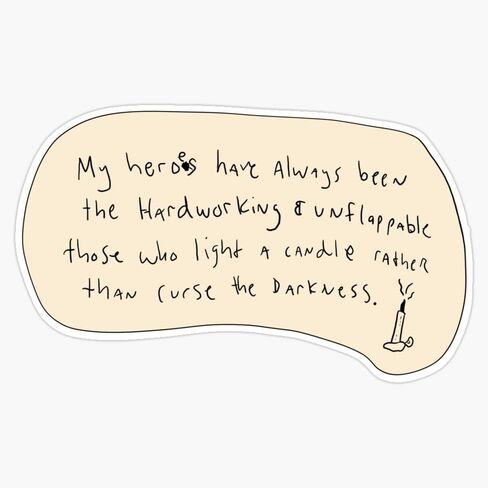 My heroes have Always been
the Hardworking & unflappable
those who light a candle rather
than curse the Darkness.